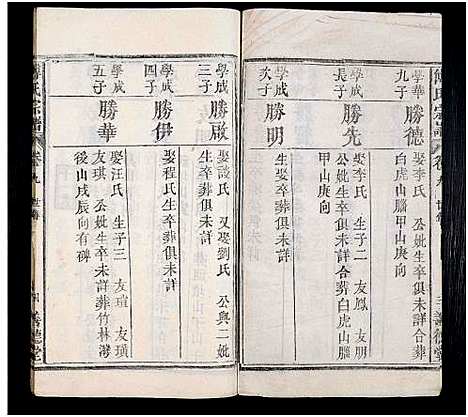 學華
九子
勝德
娶李氏 公妣生卒俱未詳合葬
白虎山腦甲山庚向
學成
長子
勝先
娶李氏 生子二 友鳳 友朋
公妣生卒俱未詳合葬白虎山腦
甲山庚向
學成
次子
勝明
生娶卒葬俱未詳
三 善德堂
學成
三子
勝啟
娶談氏 又娶劉氏 公與二妣
生卒葬俱未詳
學成
四子
勝伊
娶程氏生卒葬俱未詳
學成
五子
勝華
娶汪氏 生子三 友瑄 友璜
友琪 公妣生卒未詳葬竹林灣
後山戌辰向有碑
善德堂